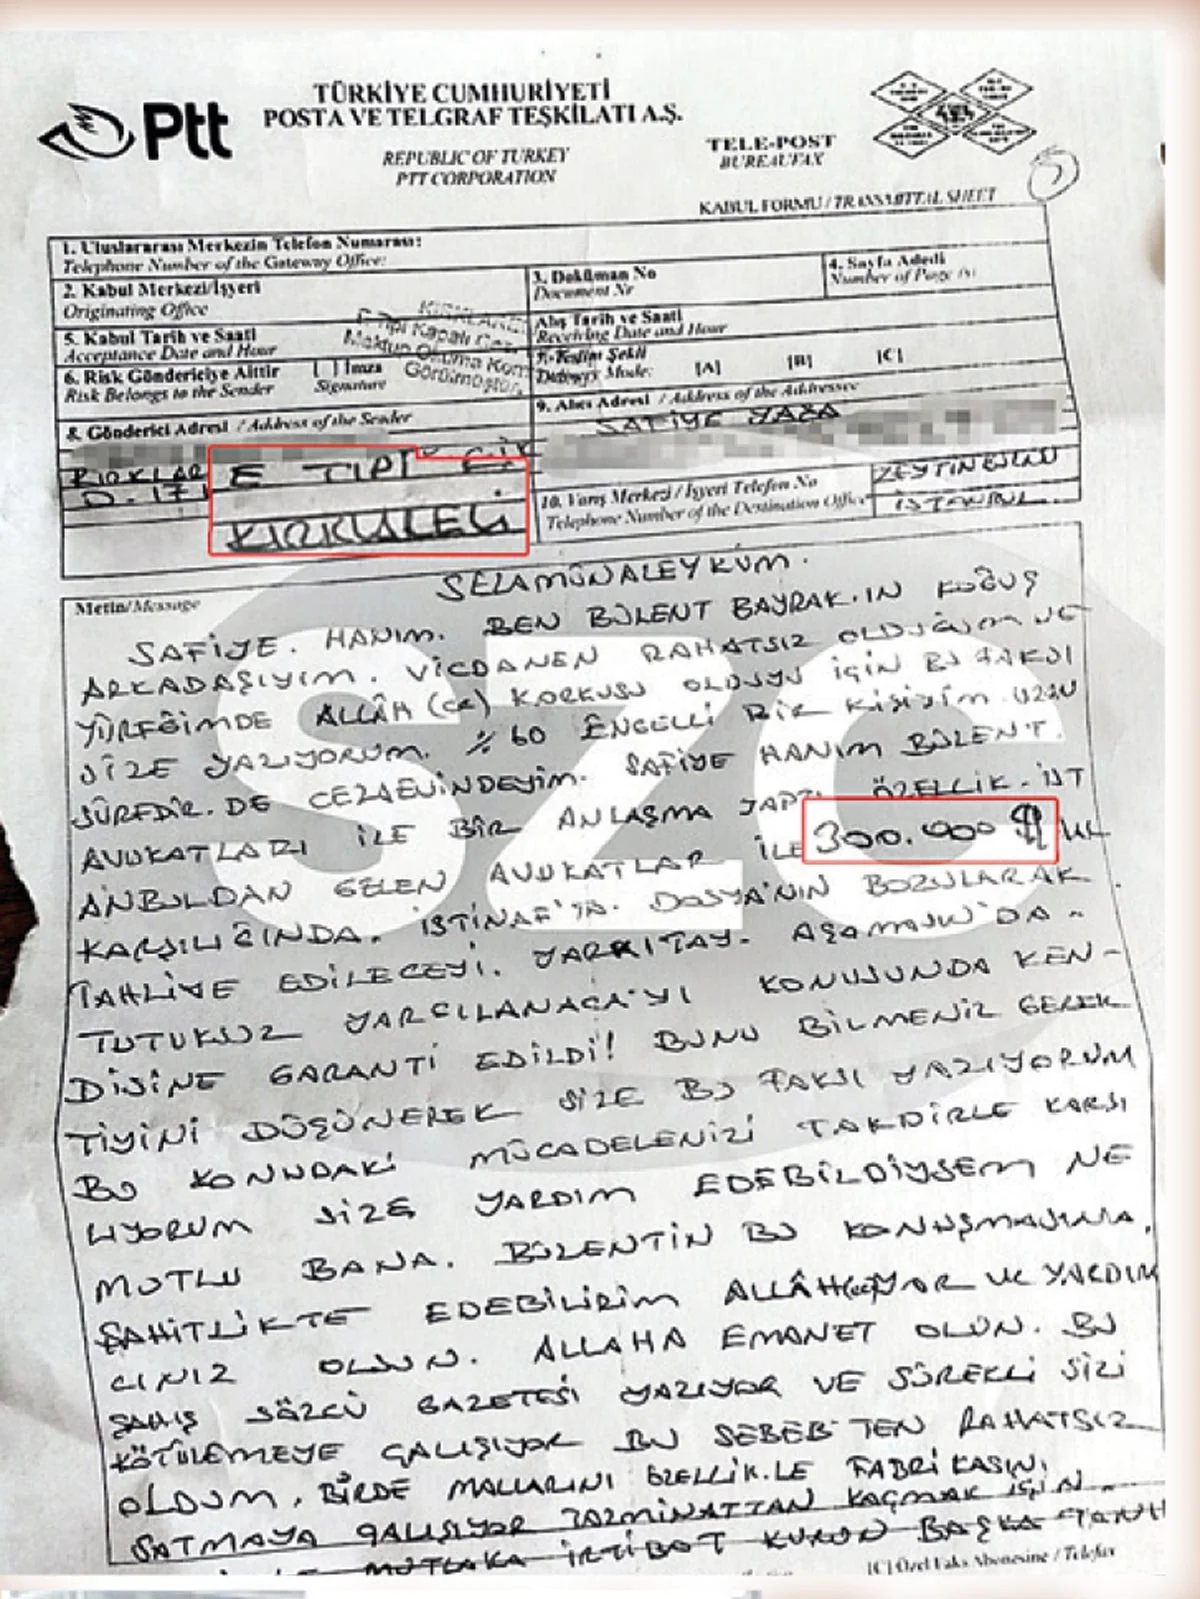 Ptt
TÜRKİYE CUMHURİYETİ
POSTA VE TELGRAF TEŞKİLATI A.Ş.
REPUBLIC OF TURKEY
PTT CORPORATION
TELE-POST
BUREAUFAX
KABUL FORMU / TRANSMITTAL SHEET
5
1. Uluslararası Merkezin Telefon Numarası:
Telephone Number of the Gateway Office:
2. Kabul Merkezi/İşyeri
Originating Office
3. Doküman No
Document Nr
4. Sayfa Adedi
Number of Page (s)
5. Kabul Tarih ve Saati
Acceptance Date and Hour
Alış Tarih ve Saati
Receiving Date and Hour
6. Risk Göndericiye Aittir
Risk Belongs to the Sender
[ ] İmza
Signature
KIRKLARELİ
E Tipi Kapalı Cez
Mektup Okuma Kom
Görülmüştür.
7. Teslim Şekli
Delivery Mode:
[A] [B] [C]
8. Gönderici Adresi / Address of the Sender
9. Alıcı Adresi / Address of the Addressee
SAFİYE YAĞA
KIRKLAR E TİPİ CİK
D-171
KIRKLALELİ
10. Varış Merkezi / İşyeri Telefon No
Telephone Number of the Destination Office
ZEYTİNBURNU
İSTANBUL
Metin/Message
SELAMÜNALEYKÜM.
SAFİYE. HANIM. BEN BÜLENT BAYRAK.IN KOĞUŞ
ARKADAŞIYIM. VİCDANEN RAHATSIZ OLDUĞUM VE
YÜREĞİMDE ALLÂH (CC) KORKUSU OLDUĞU İÇİN BU FAKSI
SİZE YAZIYORUM. % 60 ENGELLİ BİR KİŞİYİM. UZUN
SÜREDİR. DE CEZAEVİNDEYİM. SAFİYE HANIM BÜLENT.
AVUKATLARI İLE BİR ANLAŞMA YAPTI ÖZELLİK. İST
ANBULDAN GELEN AVUKATLAR İLE 300.000 $
KARŞILIĞINDA. İSTİNAF'TA. DOSYA'NIN BOZULARAK
TAHLİYE EDİLECEYİ. YARKITAY. AŞAMASIN'DA.
TUTUKSUZ YARGILANACA'YI KONUSUNDA KEN-
DİSİNE GARANTİ EDİLDİ! BUNU BİLMENİZ GEREK
TİYİNİ DÜŞÜNEREK SİZE BU FAKSI YAZIYORUM
BU KONUDAKİ MÜCADELENİZİ TAKDİRLE KARŞI
LIYORUM SİZE YARDIM EDEBİLDİYSEM NE
MUTLU BANA. BÜLENTİN BU KONUŞMASINA.
ŞAHİTLİKTE EDEBİLİRİM ALLÂH(CC) YAR VE YARDIM
CINIZ OLSUN. ALLAHA EMANET OLUN. BU
ŞAHIS SÖZCÜ GAZETESİ YAZIYOR VE SÜREKLİ SİZİ
KÖTÜLEMEYE ÇALIŞIYOR BU SEBEB'TEN RAHATSIZ
OLDUM. BİRDE MALLARINI ÖZELLİK.LE FABRİKASINI
SATMAYA ÇALIŞIYOR TAZMİNATTAN KAÇMAK İÇİN.
MUTLAKA İRTİBAT KURUN BAŞKA TANI
[C] Özel Faks Abonesine / Telefax
SZC